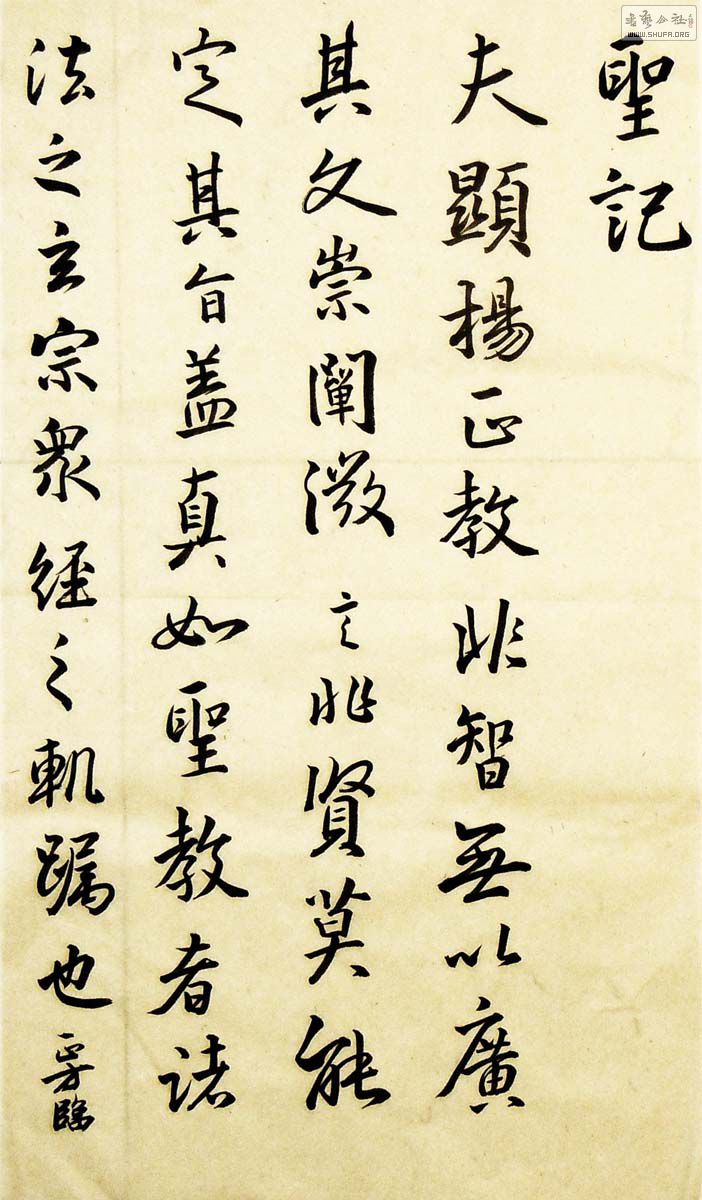 聖記
夫顯揚正教非智無以廣
其文崇闡微言非賢莫能
定其旨蓋真如聖教者諸
法之玄宗衆經之軌躅也
臨
書藝公社
WWW.SHUFA.ORG